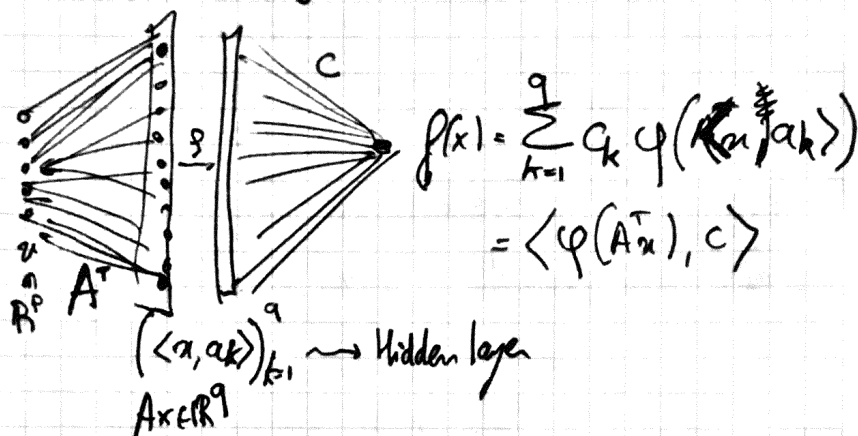 φ
C
f(x) = ∑_{k=1}^{q} c_k φ(⟨x, a_k⟩)
= ⟨φ(Aᵀx), c⟩
x
∩
ℝᵖ
Aᵀ
(⟨x, a_k⟩)_{k=1}^{q} ⇝ Hidden layer
Ax ∈ ℝ^q